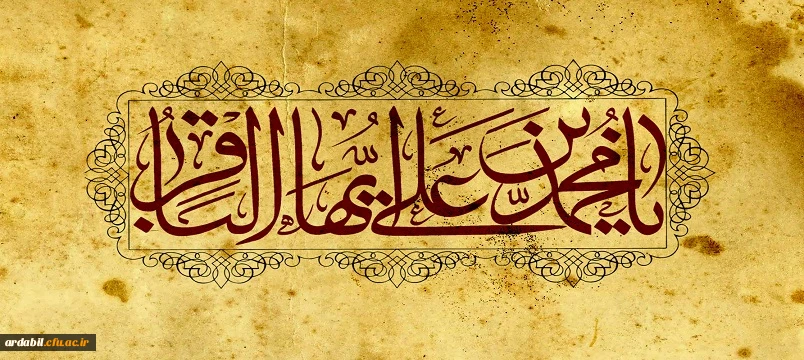 يا محمد بن علي أيها الباقر
ardabil.cfu.ac.ir